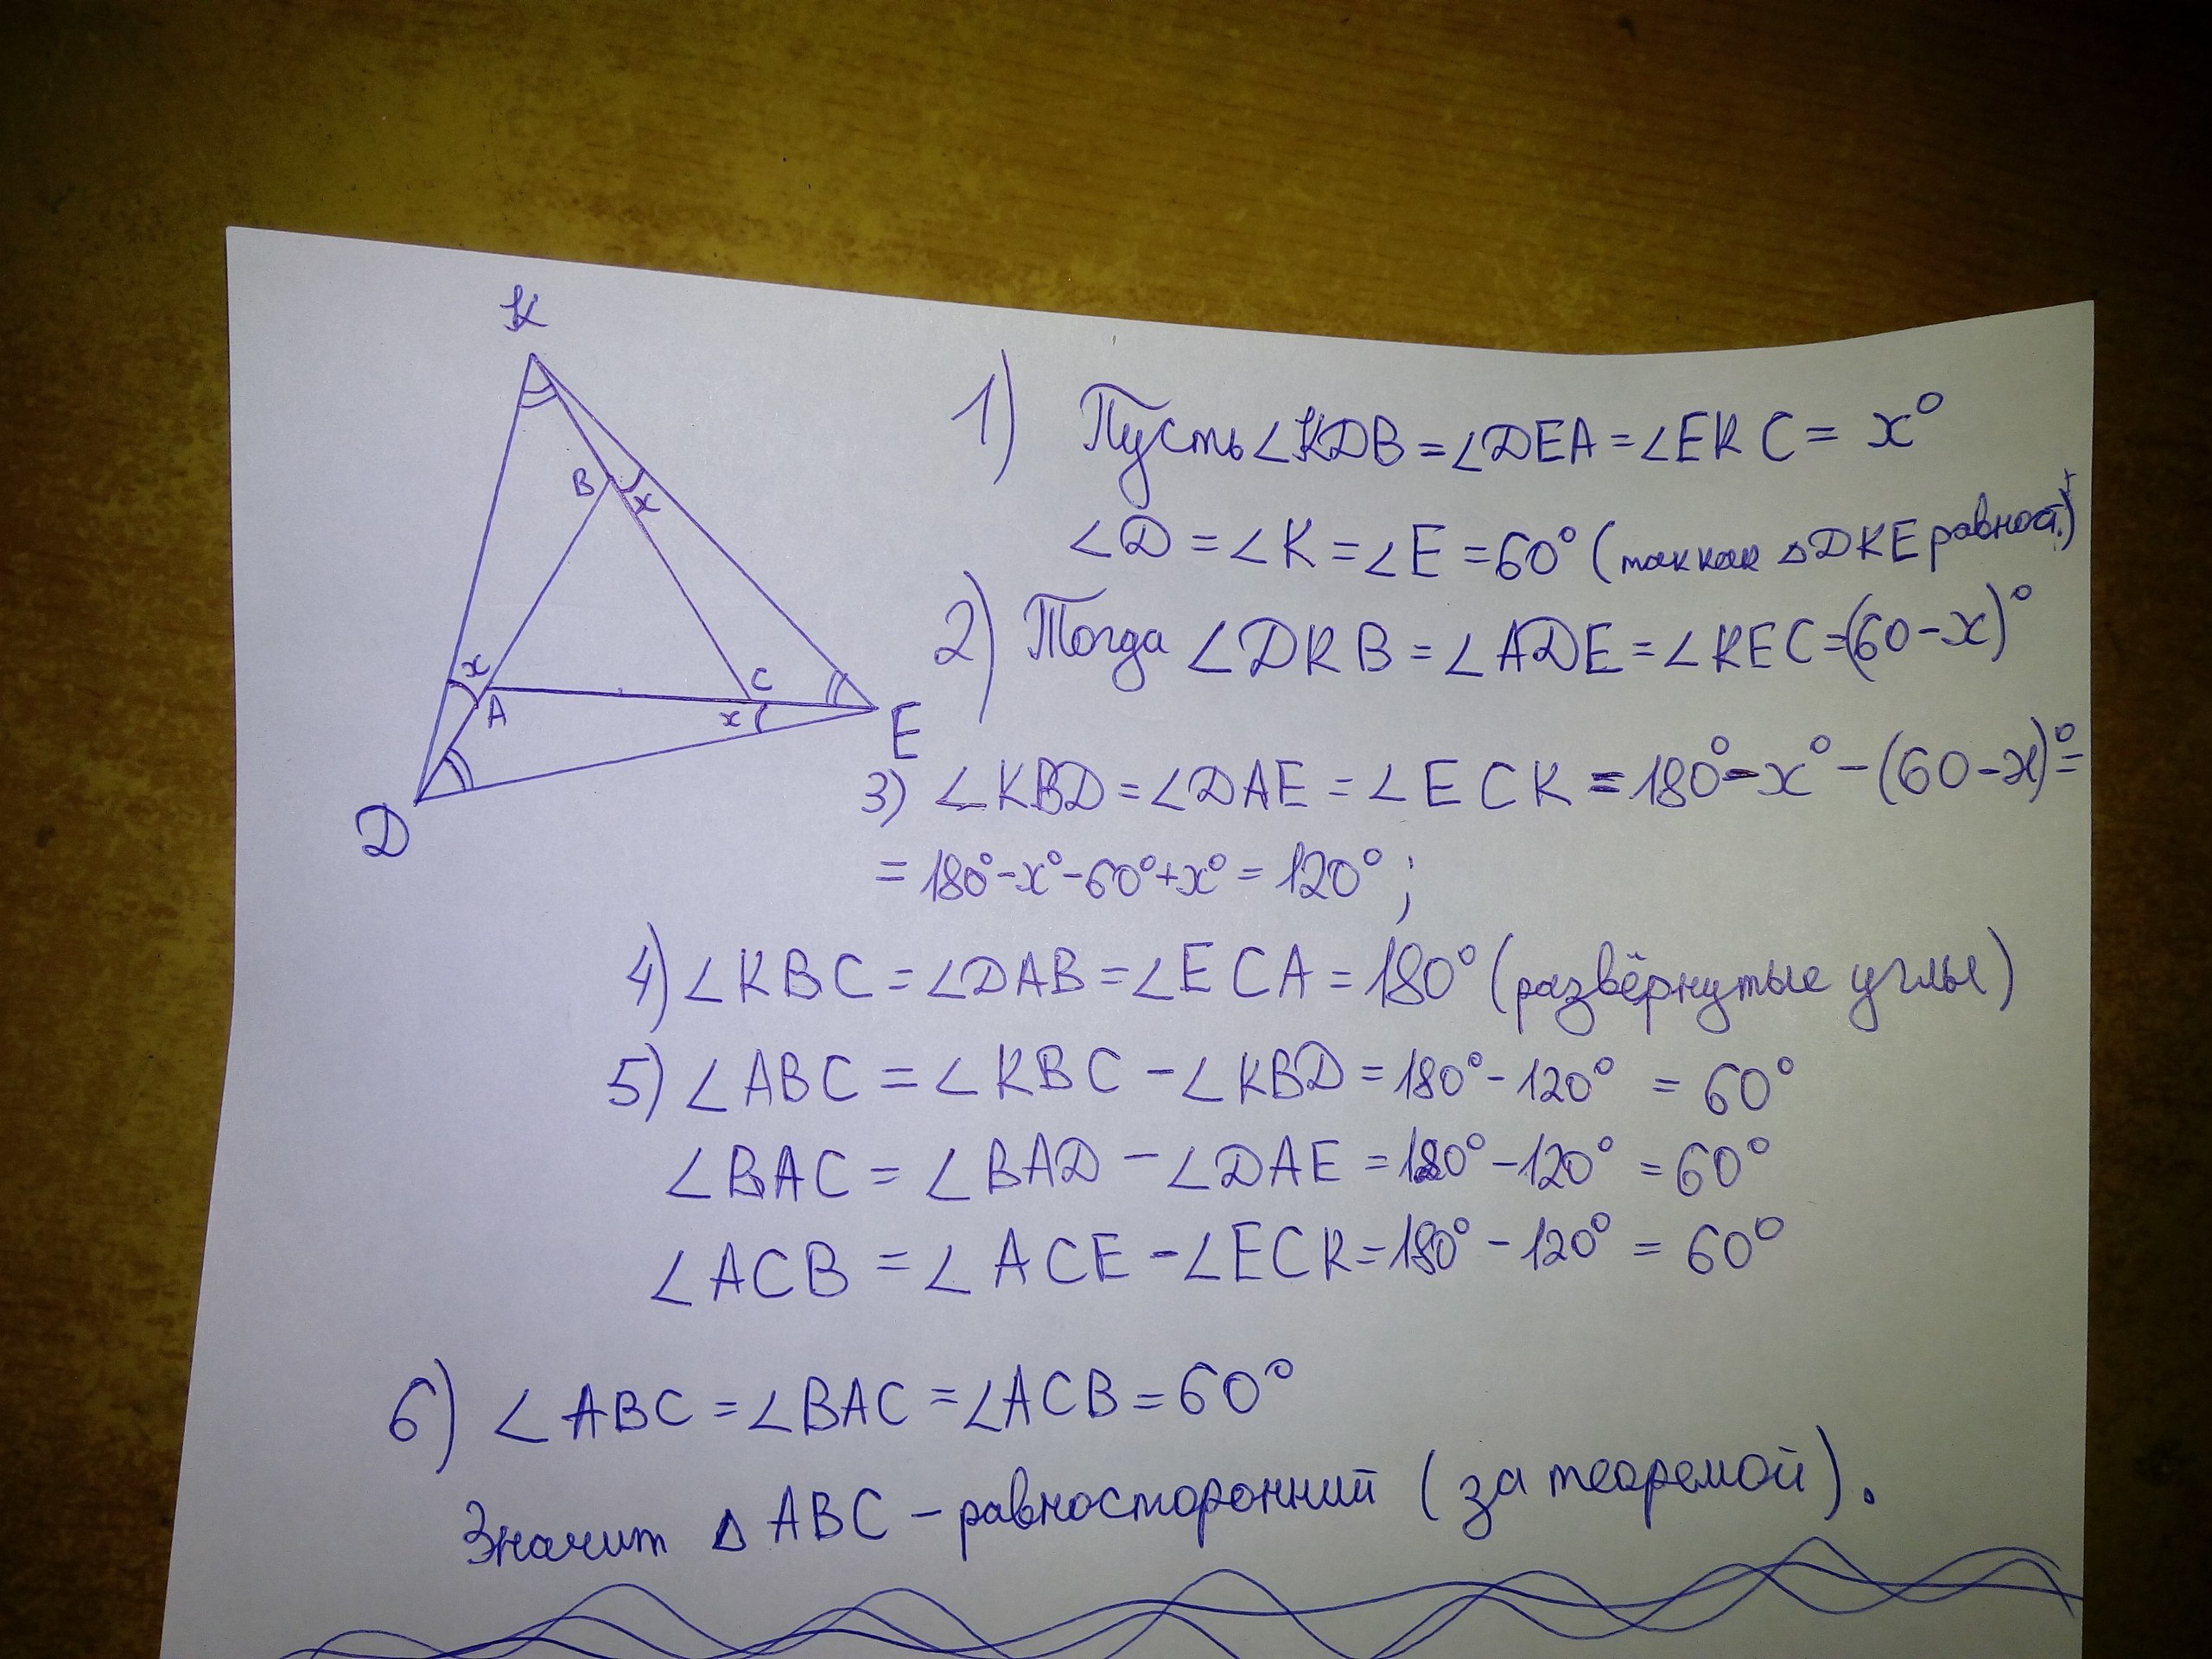 K
B
x
x
C
A
x
E
D
1) Пусть ∠KDB = ∠DEA = ∠EKC = x°
∠D = ∠K = ∠E = 60° (так как △DKE равност.)
2) Тогда ∠DKB = ∠ADE = ∠KEC = (60-x)°
3) ∠KBD = ∠DAE = ∠ECK = 180° - x° - (60-x)° =
= 180° - x° - 60° + x° = 120° ;
4) ∠KBC = ∠DAB = ∠ECA = 180° (развёрнутые углы)
5) ∠ABC = ∠KBC - ∠KBD = 180° - 120° = 60°
∠BAC = ∠BAD - ∠DAE = 180° - 120° = 60°
∠ACB = ∠ACE - ∠ECK = 180° - 120° = 60°
6) ∠ABC = ∠BAC = ∠ACB = 60°
Значит △ABC - равносторонний (за теоремой).